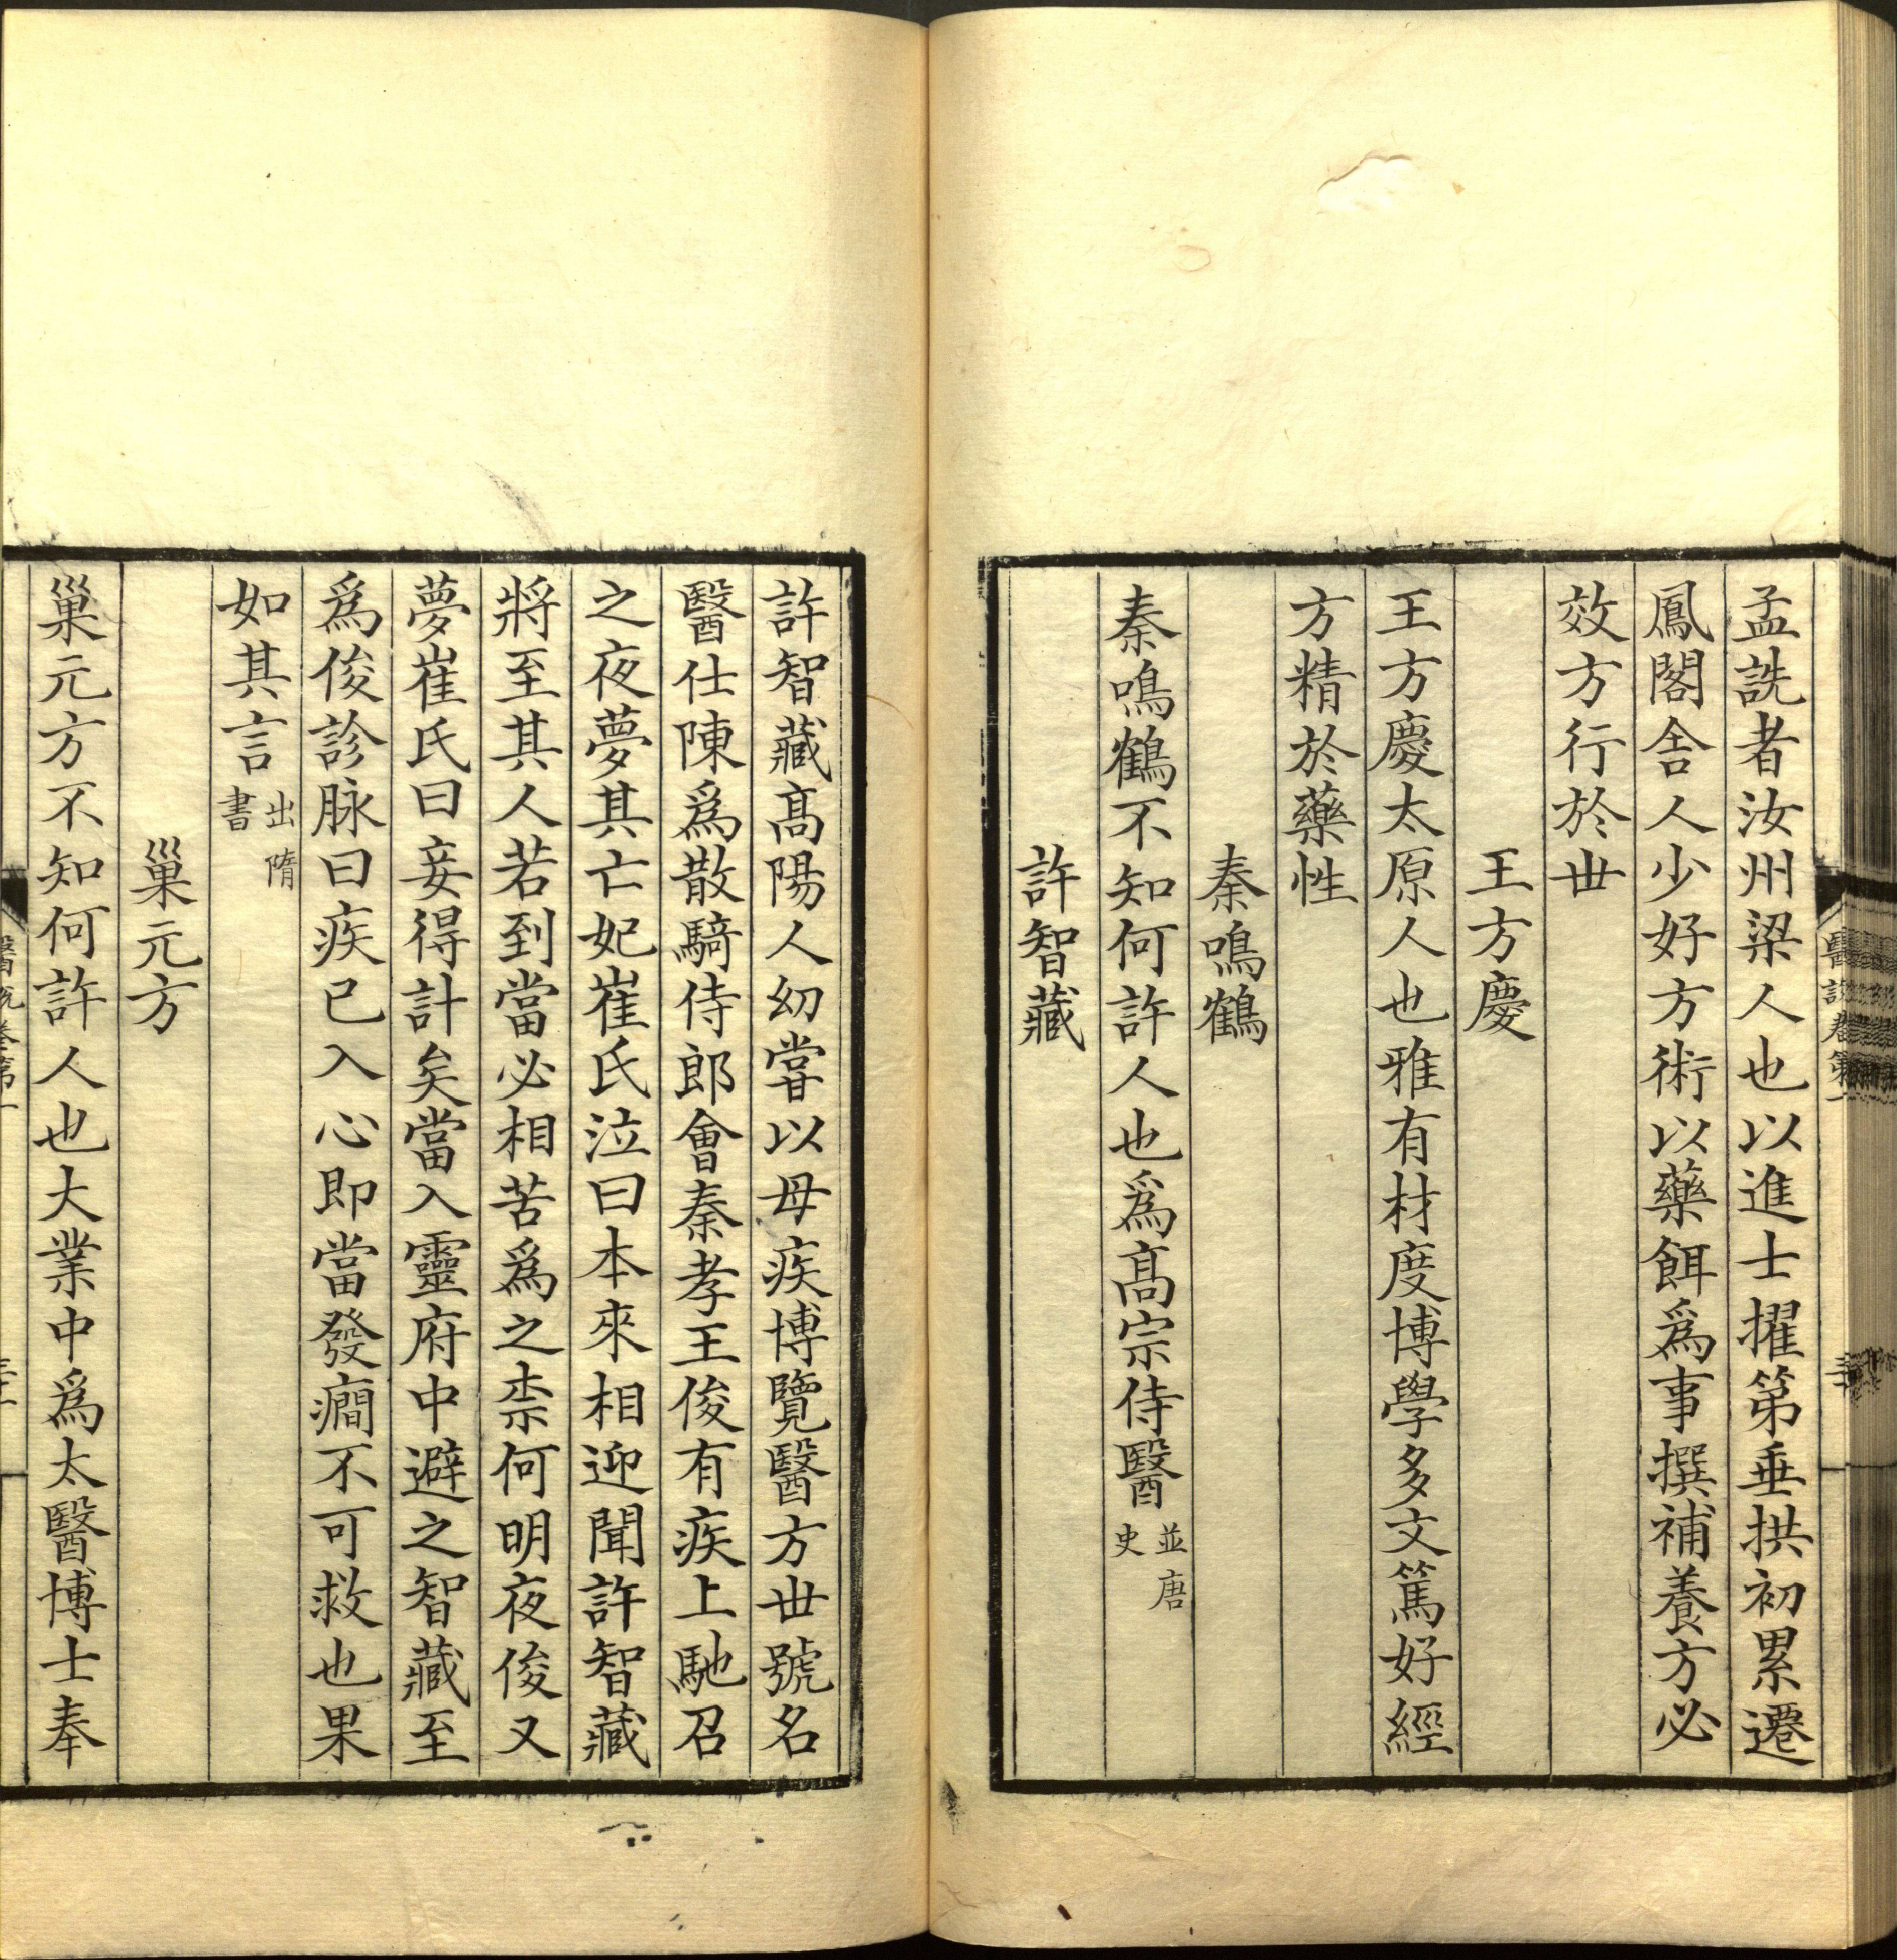 孟詵者汝州梁人也以進士擢第垂拱初累遷
鳳閣舍人少好方術以藥餌爲事撰補養方必
效方行於丗
王方慶
王方慶太原人也雅有材度博學多文篤好經
方精於藥性
秦鳴鶴
秦鳴鶴不知何許人也爲髙宗侍醫並唐史
許智藏
許智藏髙陽人幼甞以母疾博覽醫方丗號名
醫仕陳爲散騎侍郎會秦孝王俊有疾上馳召
之夜夢其亡妃崔氏泣曰本來相迎聞許智藏
將至其人若到當必相苦爲之柰何明夜俊又
夢崔氏曰妾得計矣當入靈府中避之智藏至
爲俊診脉曰疾已入心即當發癎不可救也果
如其言出隋書
巢元方
巢元方不知何許人也大業中爲太醫博士奉
醫說卷第一